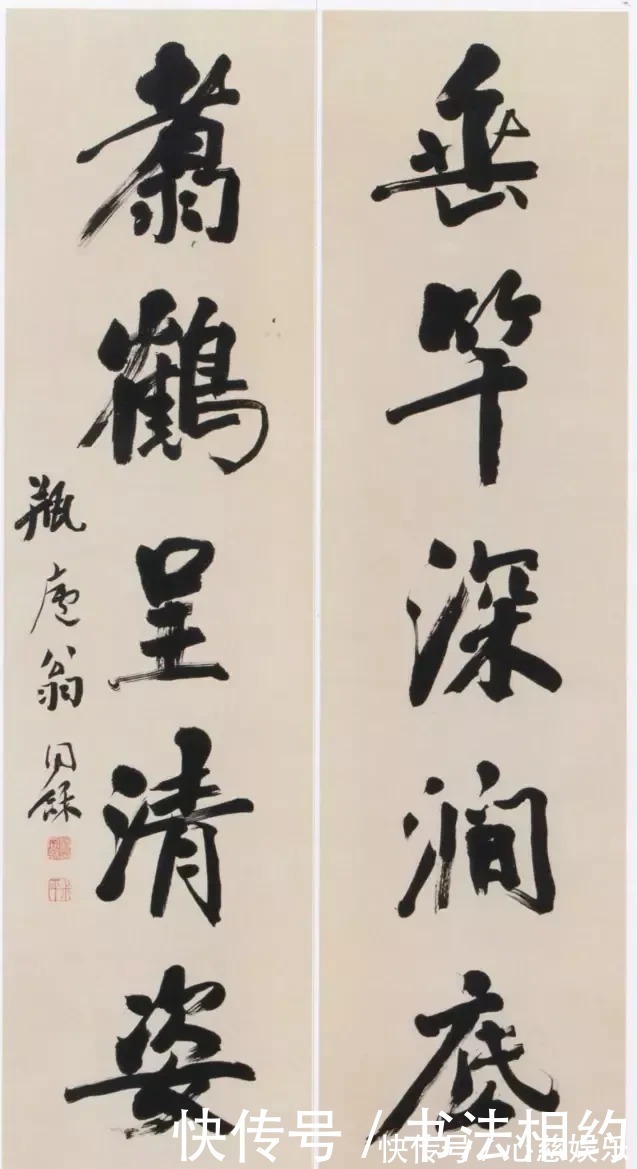 垂竿深澗底
翥鶴呈清姿
瓶廬翁同龢
快传号 / 书法相约
快传号 / 心慈娱乐